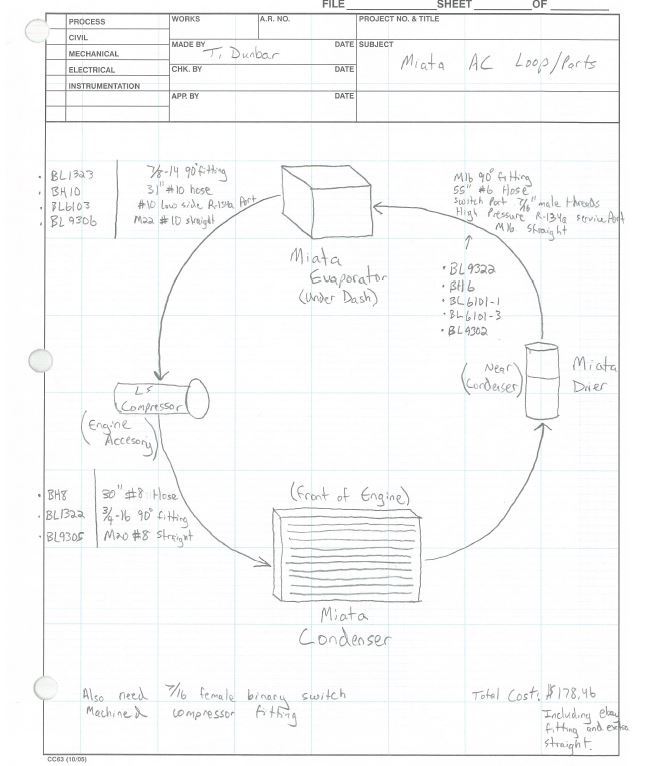 FILE SHEET OF
PROCESS
CIVIL
MECHANICAL
ELECTRICAL
INSTRUMENTATION
WORKS A.R. NO.
MADE BY DATE
T. Dunbar
CHK. BY DATE
APP. BY DATE
PROJECT NO. & TITLE
SUBJECT
Miata AC Loop/Parts
• BL1323 7/8-14 90° fitting
• BH10 31" #10 hose
• BL6103 #10 Low side R-134a Port
• BL9306 M22 #10 straight
Miata
Evaporator
(Under Dash)
M16 90° fitting
55" #6 Hose
Switch Port 7/16" male threads
High Pressure R-134a service Port
M16 Straight
• BL9322
• BH6
• BL6101-1
• BL6101-3
• BL9302
LS
Compressor
(Engine
Accesory)
(Near
Condenser)
Miata
Drier
• BH8 50" #8 Hose
• BL1322 3/4-16 90° fitting
• BL9305 M20 #8 straight
(Front of Engine)
Miata
Condenser
Also need 7/16 female binary switch
Machined compressor fitting
Total Cost: $178.46
Including ebay
fitting and extra
straight.
CC63 (10/05)